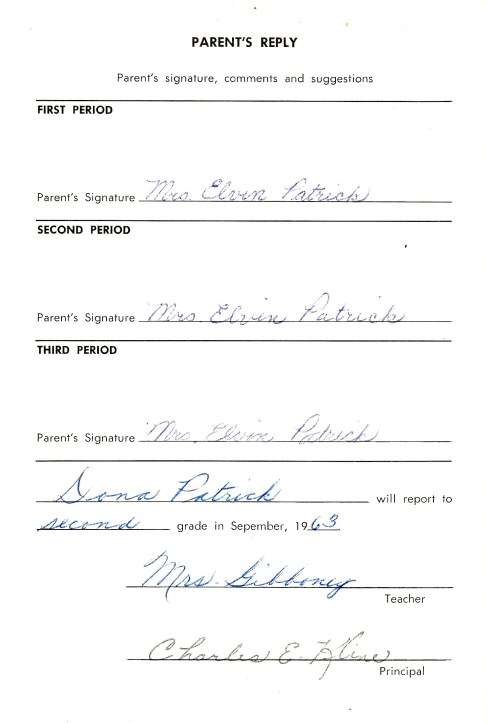 PARENT'S REPLY
Parent's signature, comments and suggestions
FIRST PERIOD
Parent's Signature Mrs. Elvin Patrick
SECOND PERIOD
Parent's Signature Mrs. Elvin Patrick
THIRD PERIOD
Parent's Signature Mrs. Elvin Patrick
Dona Patrick will report to
second grade in Sepember, 1963
Mrs. Gibboney
Teacher
Charles E. Kline
Principal